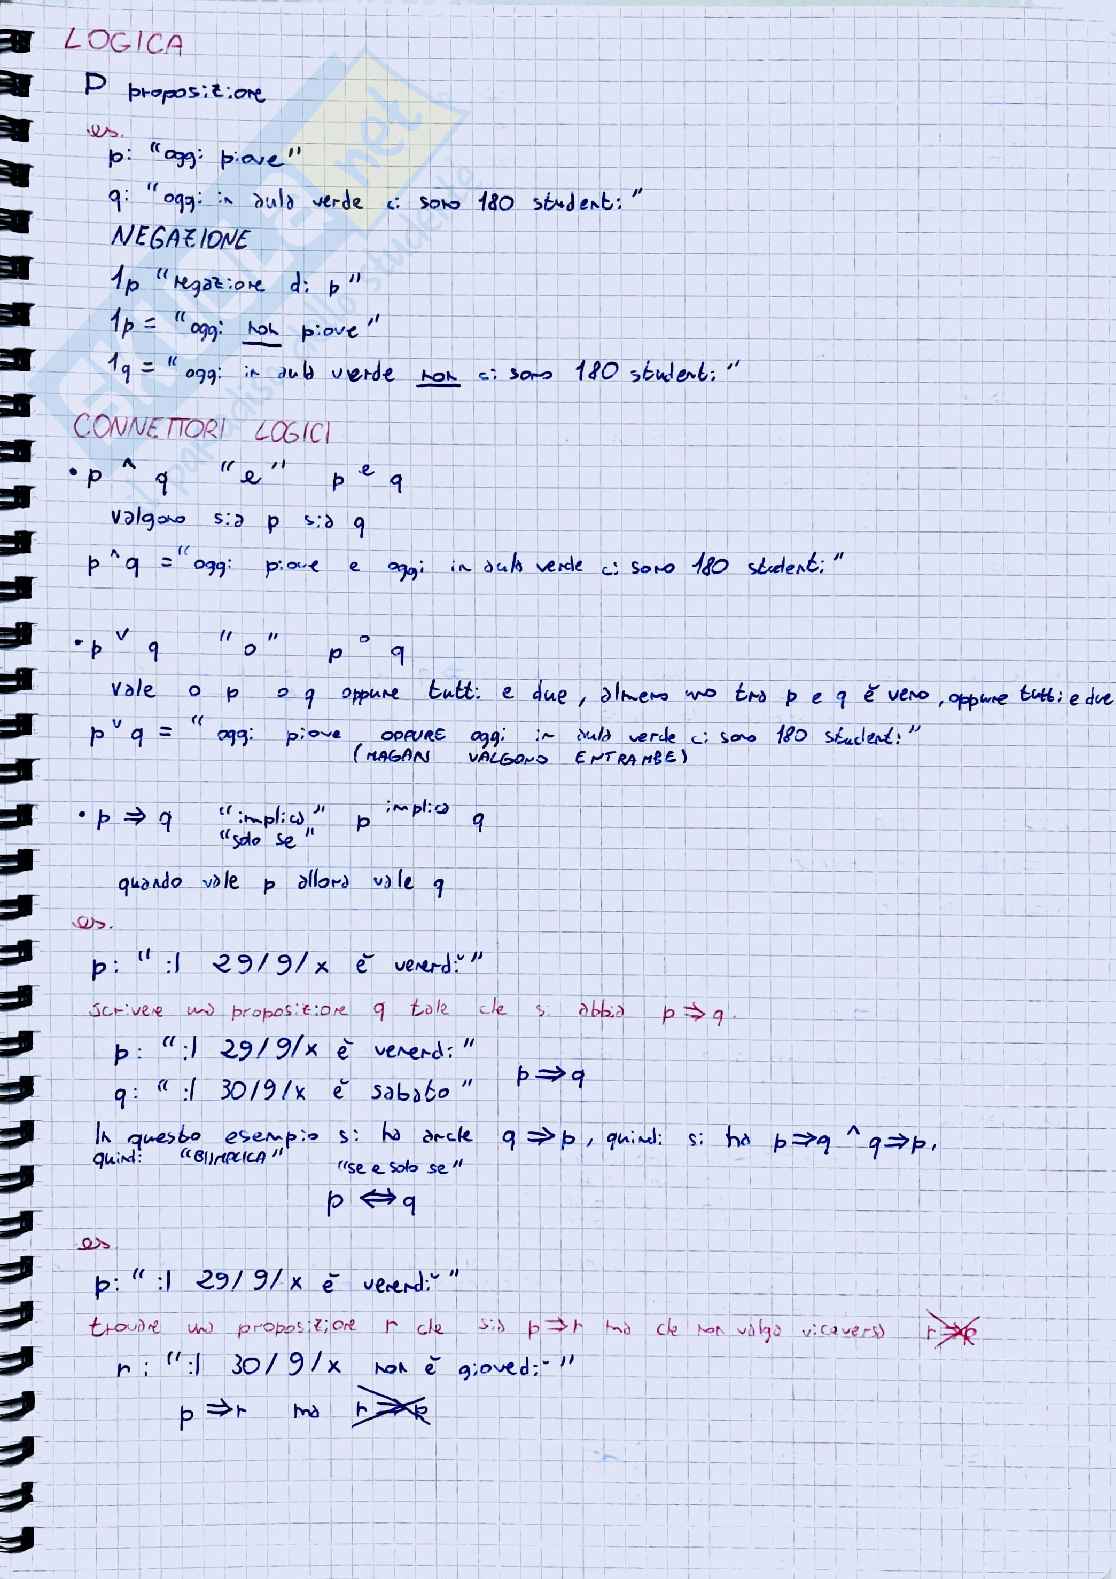 LOGICA
P proposizione
es.
p: "oggi piove"
q: "oggi in aula verde ci sono 180 studenti"
NEGAZIONE
1p "negazione di p"
1p = "oggi non piove"
1q = "oggi in aula verde non ci sono 180 studenti"
CONNETTORI LOGICI
• p ^ q "e" p e q
valgono sia p sia q
p ^ q = "oggi piove e oggi in aula verde ci sono 180 studenti"
• p ˅ q "o" p o q
vale o p o q oppure tutti e due, almeno uno tra p e q è vero, oppure tutti e due
p ˅ q = "oggi piove OPPURE oggi in aula verde ci sono 180 studenti"
(MAGARI VALGONO ENTRAMBE)
• p ⇒ q "implica" p implica q
"solo se"
quando vale p allora vale q
es.
p: "il 29/9/x è venerdì"
scrivere una proposizione q tale che si abbia p ⇒ q.
p: "il 29/9/x è venerdì"
q: "il 30/9/x è sabato" p ⇒ q
In questo esempio si ha anche q ⇒ p, quindi si ha p ⇒ q ^ q ⇒ p,
quindi "BIIMPLICA"
"se e solo se"
p ⇔ q
es
p: "il 29/9/x è venerdì"
trovare una proposizione r che sia p ⇒ r ma che non valga viceversa r ⇒ p
r: "il 30/9/x non è giovedì"
p ⇒ r ma r ⇒ p